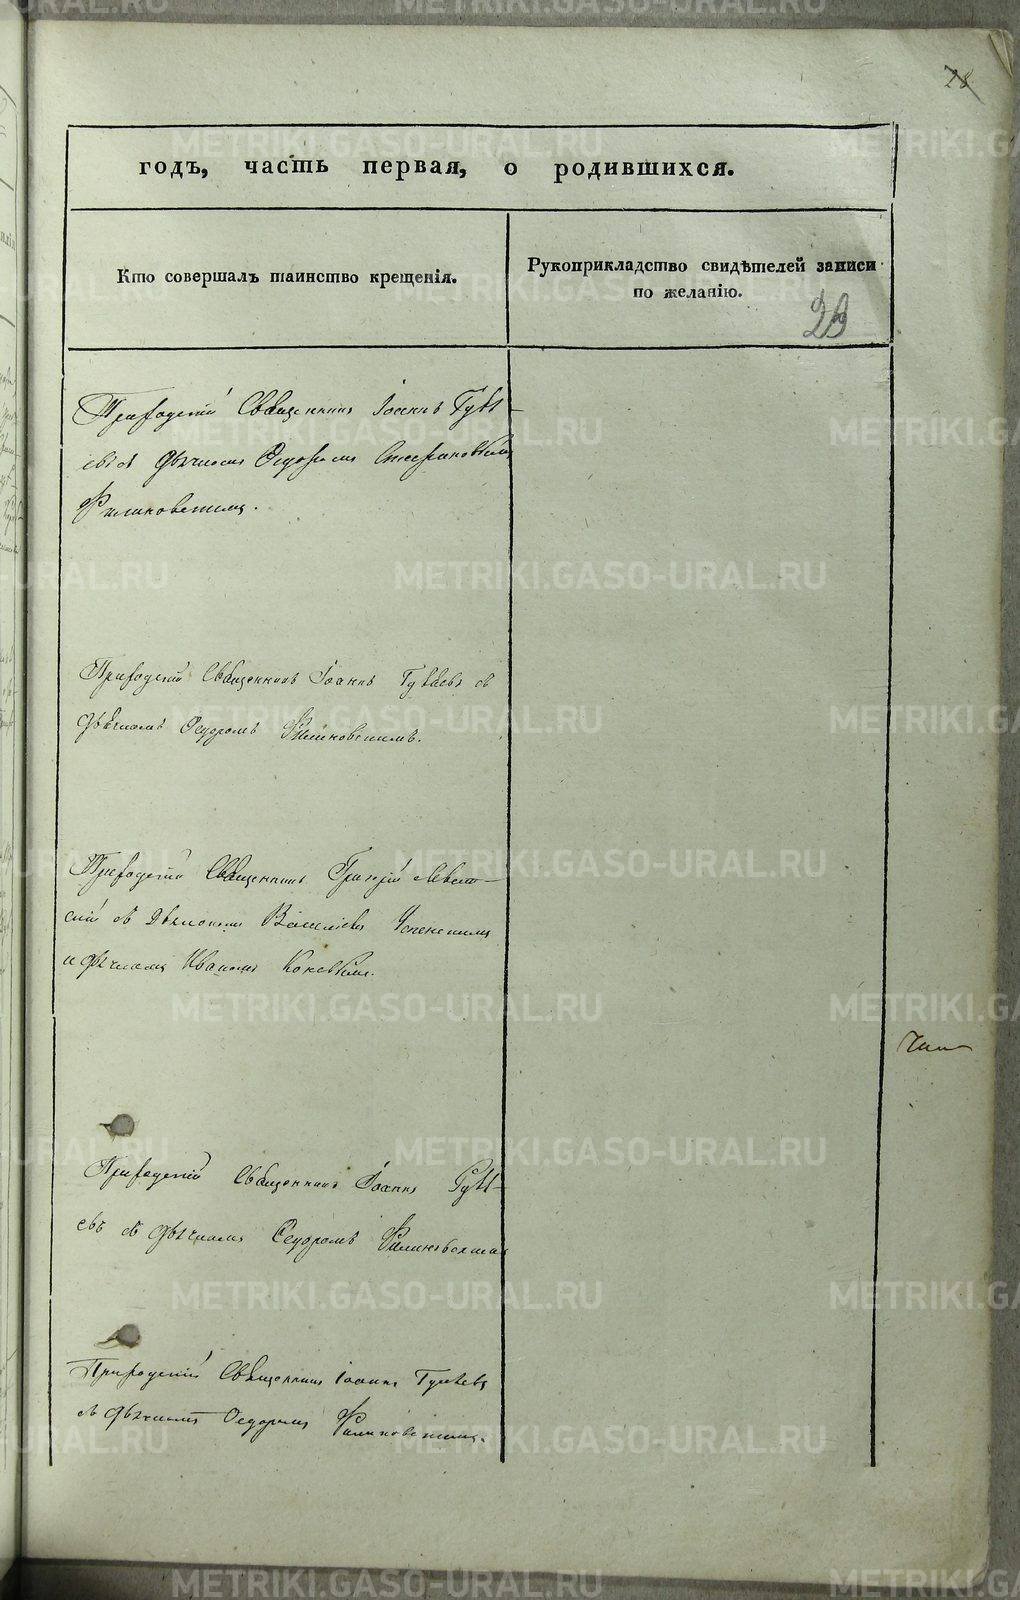 28
годъ, часть первая, о родившихся.
Кто совершалъ таинство крещенія.
Рукоприкладство свидѣтелей записи
по желанію.
23
Приходскій Священникъ Іоаннъ
съ дьячкомъ Ѳедоромъ
Филиновскимъ.
Приходскій Священникъ Іоаннъ съ
дьячкомъ Ѳедоромъ Филиновскимъ.
Приходскій Священникъ Григорій
скій съ Діакономъ Василіемъ Успенскимъ
и дьячкомъ Иваномъ
Приходскій Священникъ Іоаннъ
евъ съ дьячкомъ Ѳедоромъ Филиновскимъ
Приходскій Священникъ Іоаннъ
съ дьячкомъ Ѳедоромъ Филиновскимъ.
METRIKI.GASO-URAL.RU